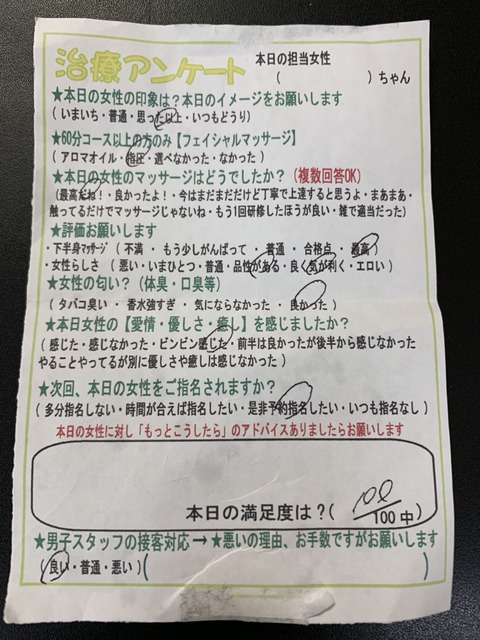 治療アンケート
本日の担当女性
( )ちゃん
★本日の女性の印象は？本日のイメージをお願いします
(いまいち・普通・思った以上・いつもどうり)
★60分コース以上の方のみ【フェイシャルマッサージ】
(アロマオイル・指圧・選べなかった・なかった)
★本日の女性のマッサージはどうでしたか？(複数回答OK)
(最高だね！・良かったよ！・今はまだまだだけど丁寧で上達すると思うよ・まあまあ・
触ってるだけでマッサージじゃないね・もう1回研修したほうが良い・雑で適当だった)
★評価お願いします
・下半身マッサージ (不満・もう少しがんばって・普通・合格点・最高)
・女性らしさ (悪い・いまひとつ・普通・品性がある・良く気が利く・エロい)
★女性の匂い？(体臭・口臭等)
(タバコ臭い・香水強すぎ・気にならなかった・良かった)
★本日女性の【愛情・優しさ・癒し】を感じましたか？
(感じた・感じなかった・ビンビン感じた・前半は良かったが後半から感じなかった
やることやってるが別に優しさや癒しは感じなかった)
★次回、本日の女性をご指名されますか？
(多分指名しない・時間が合えば指名したい・是非予約指名したい・いつも指名なし)
本日の女性に対し「もっとこうしたら」のアドバイスありましたらお願いします
本日の満足度は？( 100/100中)
★男子スタッフの接客対応→★悪いの理由、お手数ですがお願いします
(良い・普通・悪い)( )